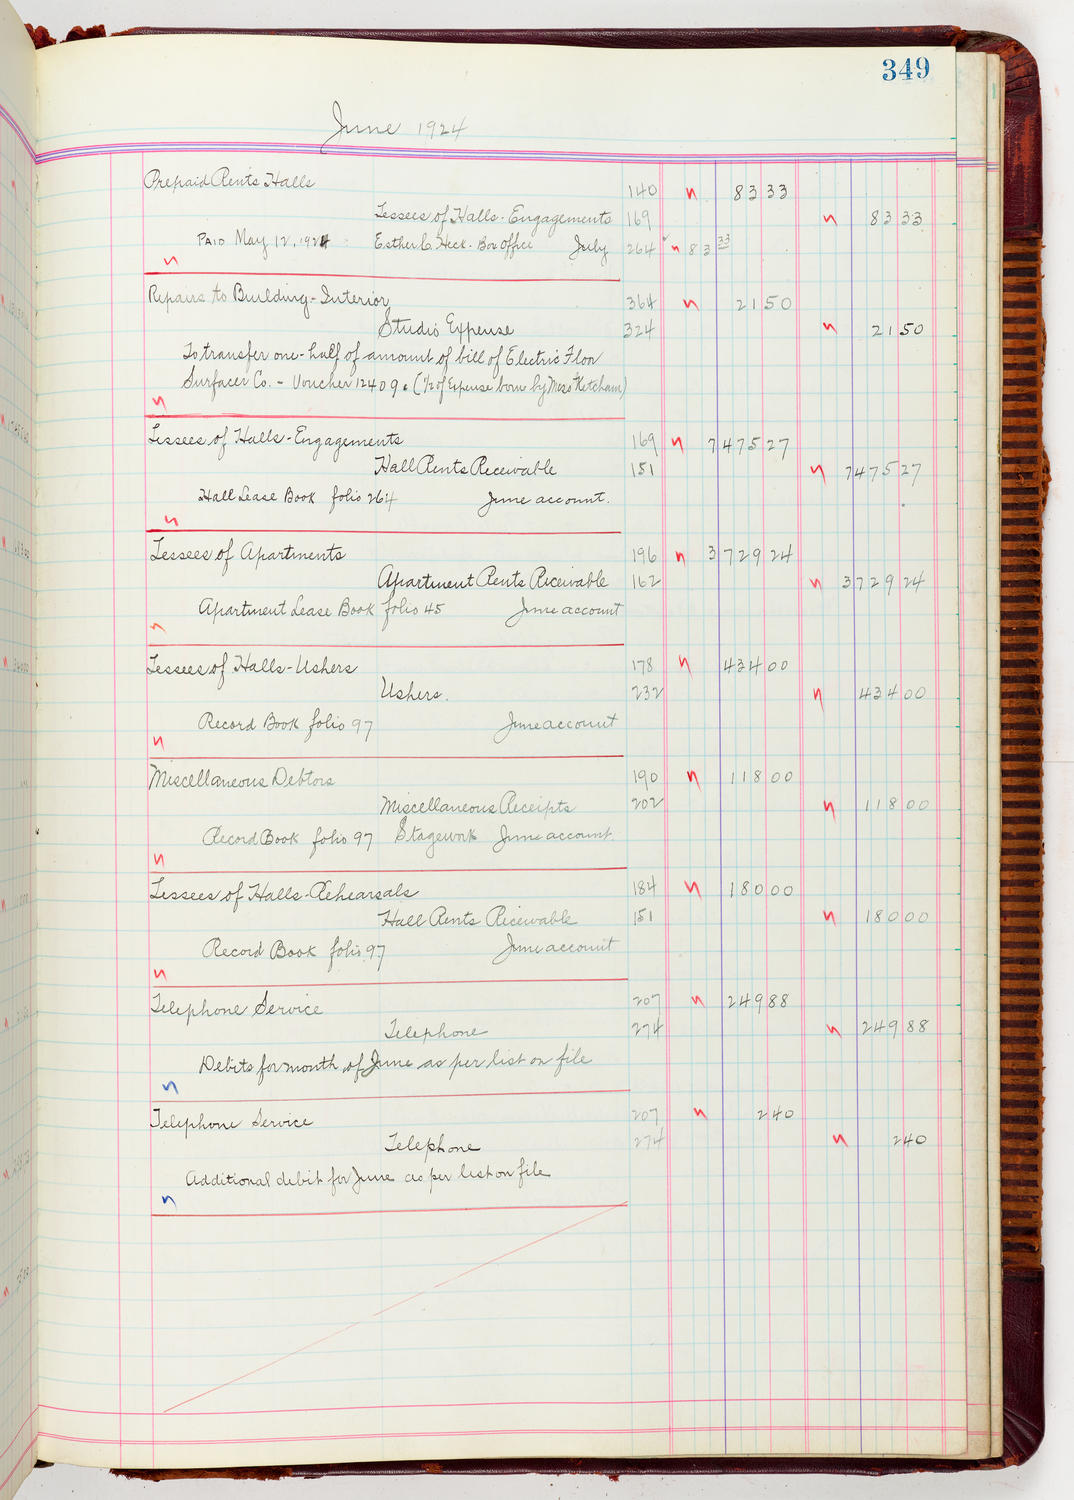 349
June 1924
Prepaid Rents Halls 140 8333
Lessees of Halls - Engagements 169 8333
PAID May 12, 1924 Esther C. Heck - Box Office July 264 83 33
Repairs to Building - Interior 364 2150
Studio Expense 324 2150
To transfer one-half of amount of bill of Electric Floor
Surfacer Co. - Voucher 12409. (1/2 of Expense born by Miss Ketcham)
Lessees of Halls - Engagements 169 747527
Hall Rents Receivable 151 747527
Hall Lease Book folio 264 June account.
Lessees of Apartments 196 372924
Apartment Rents Receivable 162 372924
Apartment Lease Book folio 45 June account
Lessees of Halls - Ushers 178 43400
Ushers. 232 43400
Record Book folio 97 June account
Miscellaneous Debtors 190 11800
Miscellaneous Receipts 202 11800
Record Book folio 97 Stagework June account.
Lessees of Halls - Rehearsals 184 18000
Hall Rents Receivable 151 18000
Record Book folio 97 June account
Telephone Service 207 24988
Telephone 274 24988
Debits for month of June as per list on file
Telephone Service 207 240
Telephone 274 240
Additional debit for June as per list on file